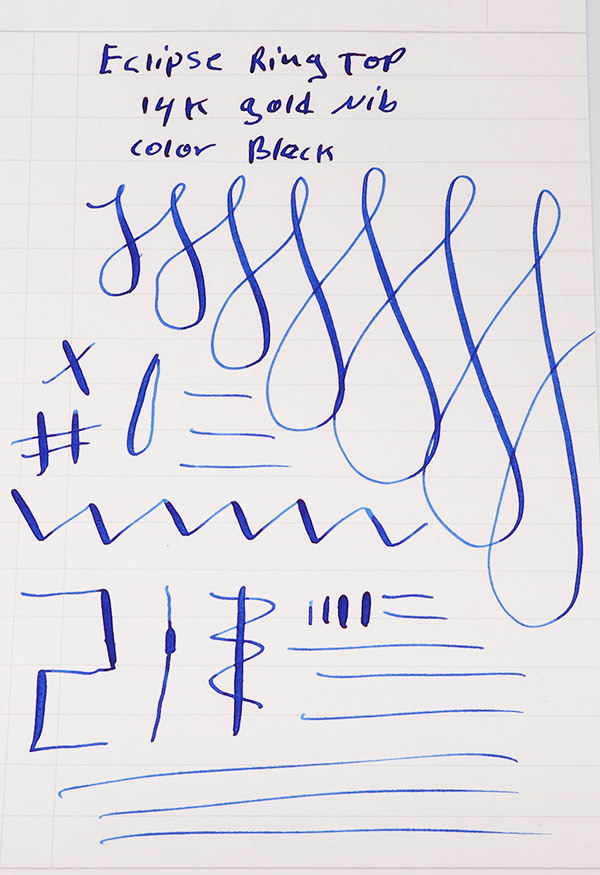 Eclipse Ring Top
14K gold Nib
color Black
X
#